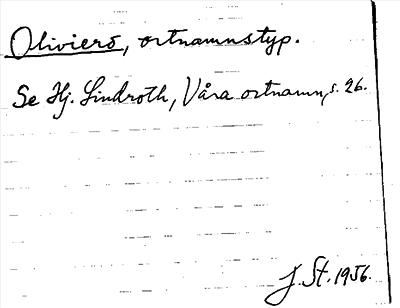 Oliviero, ortnamnstyp.
Se Hj. Lindroth, Våra ortnamn, s. 26.
J. St. 1956.